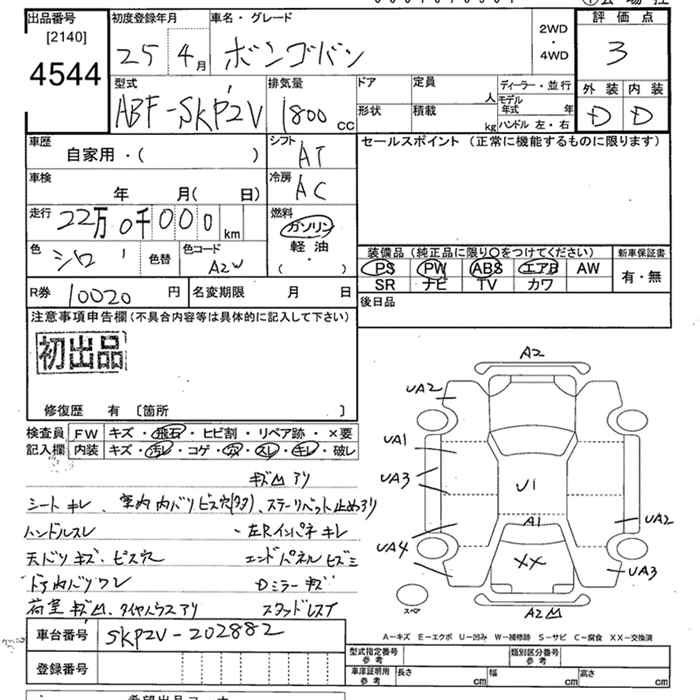 出品番号 [2140] 4544
初度登録年月 25 4月
車名・グレード ボンゴバン
2WD・4WD
評価点 3
外装 D 内装 D
型式 ABF-SKP2V
排気量 1800 cc
ドア 定員 人
形状 積載 kg
ディーラー・並行
モデル年式 年
ハンドル 左・右
車歴 自家用・( )
シフト AT
セールスポイント (正常に機能するものに限ります)
車検 年 月( 日)
冷房 AC
走行 22万0千000 km
燃料 ガソリン 軽油 ( ・ )
色 シロ 色替 色コード A2W
装備品(純正品に限り○をつけてください) 新車保証書
PS PW ABS エアB AW 有・無
SR ナビ TV カワ
R券 10020 円 名変期限 月 日
後日品
注意事項申告欄(不具合内容等は具体的に記入して下さい)
初出品
修復歴 有 〔箇所 〕
検査員 FW キズ・飛石・ヒビ割・リペア跡・×要
記入欄 内装 キズ・汚レ・コゲ・穴・スレ・キレ・破レ
シートキレ、室内内バリビス穴
ハンドルスレ 左Rインパネキレ
天バリキズ・ビス穴 エンドパネルヒズミ
ドア内バリワレ Dミラーキズ
荷室キズ凹、タイヤハウスアリ スタッドレス
A2
UA2
UA1
UA3
U1
A1
UA2
UA4
XX
UA3
スペア
A2凹
A−キズ E−エクボ U−凹み W−補修跡 S−サビ C−腐食 XX−交換済
車台番号 SKP2V-202882
型式指定番号 参考 類別区分番号 参考
登録番号
車庫証明用 参考 長さ cm 幅 cm 高さ cm